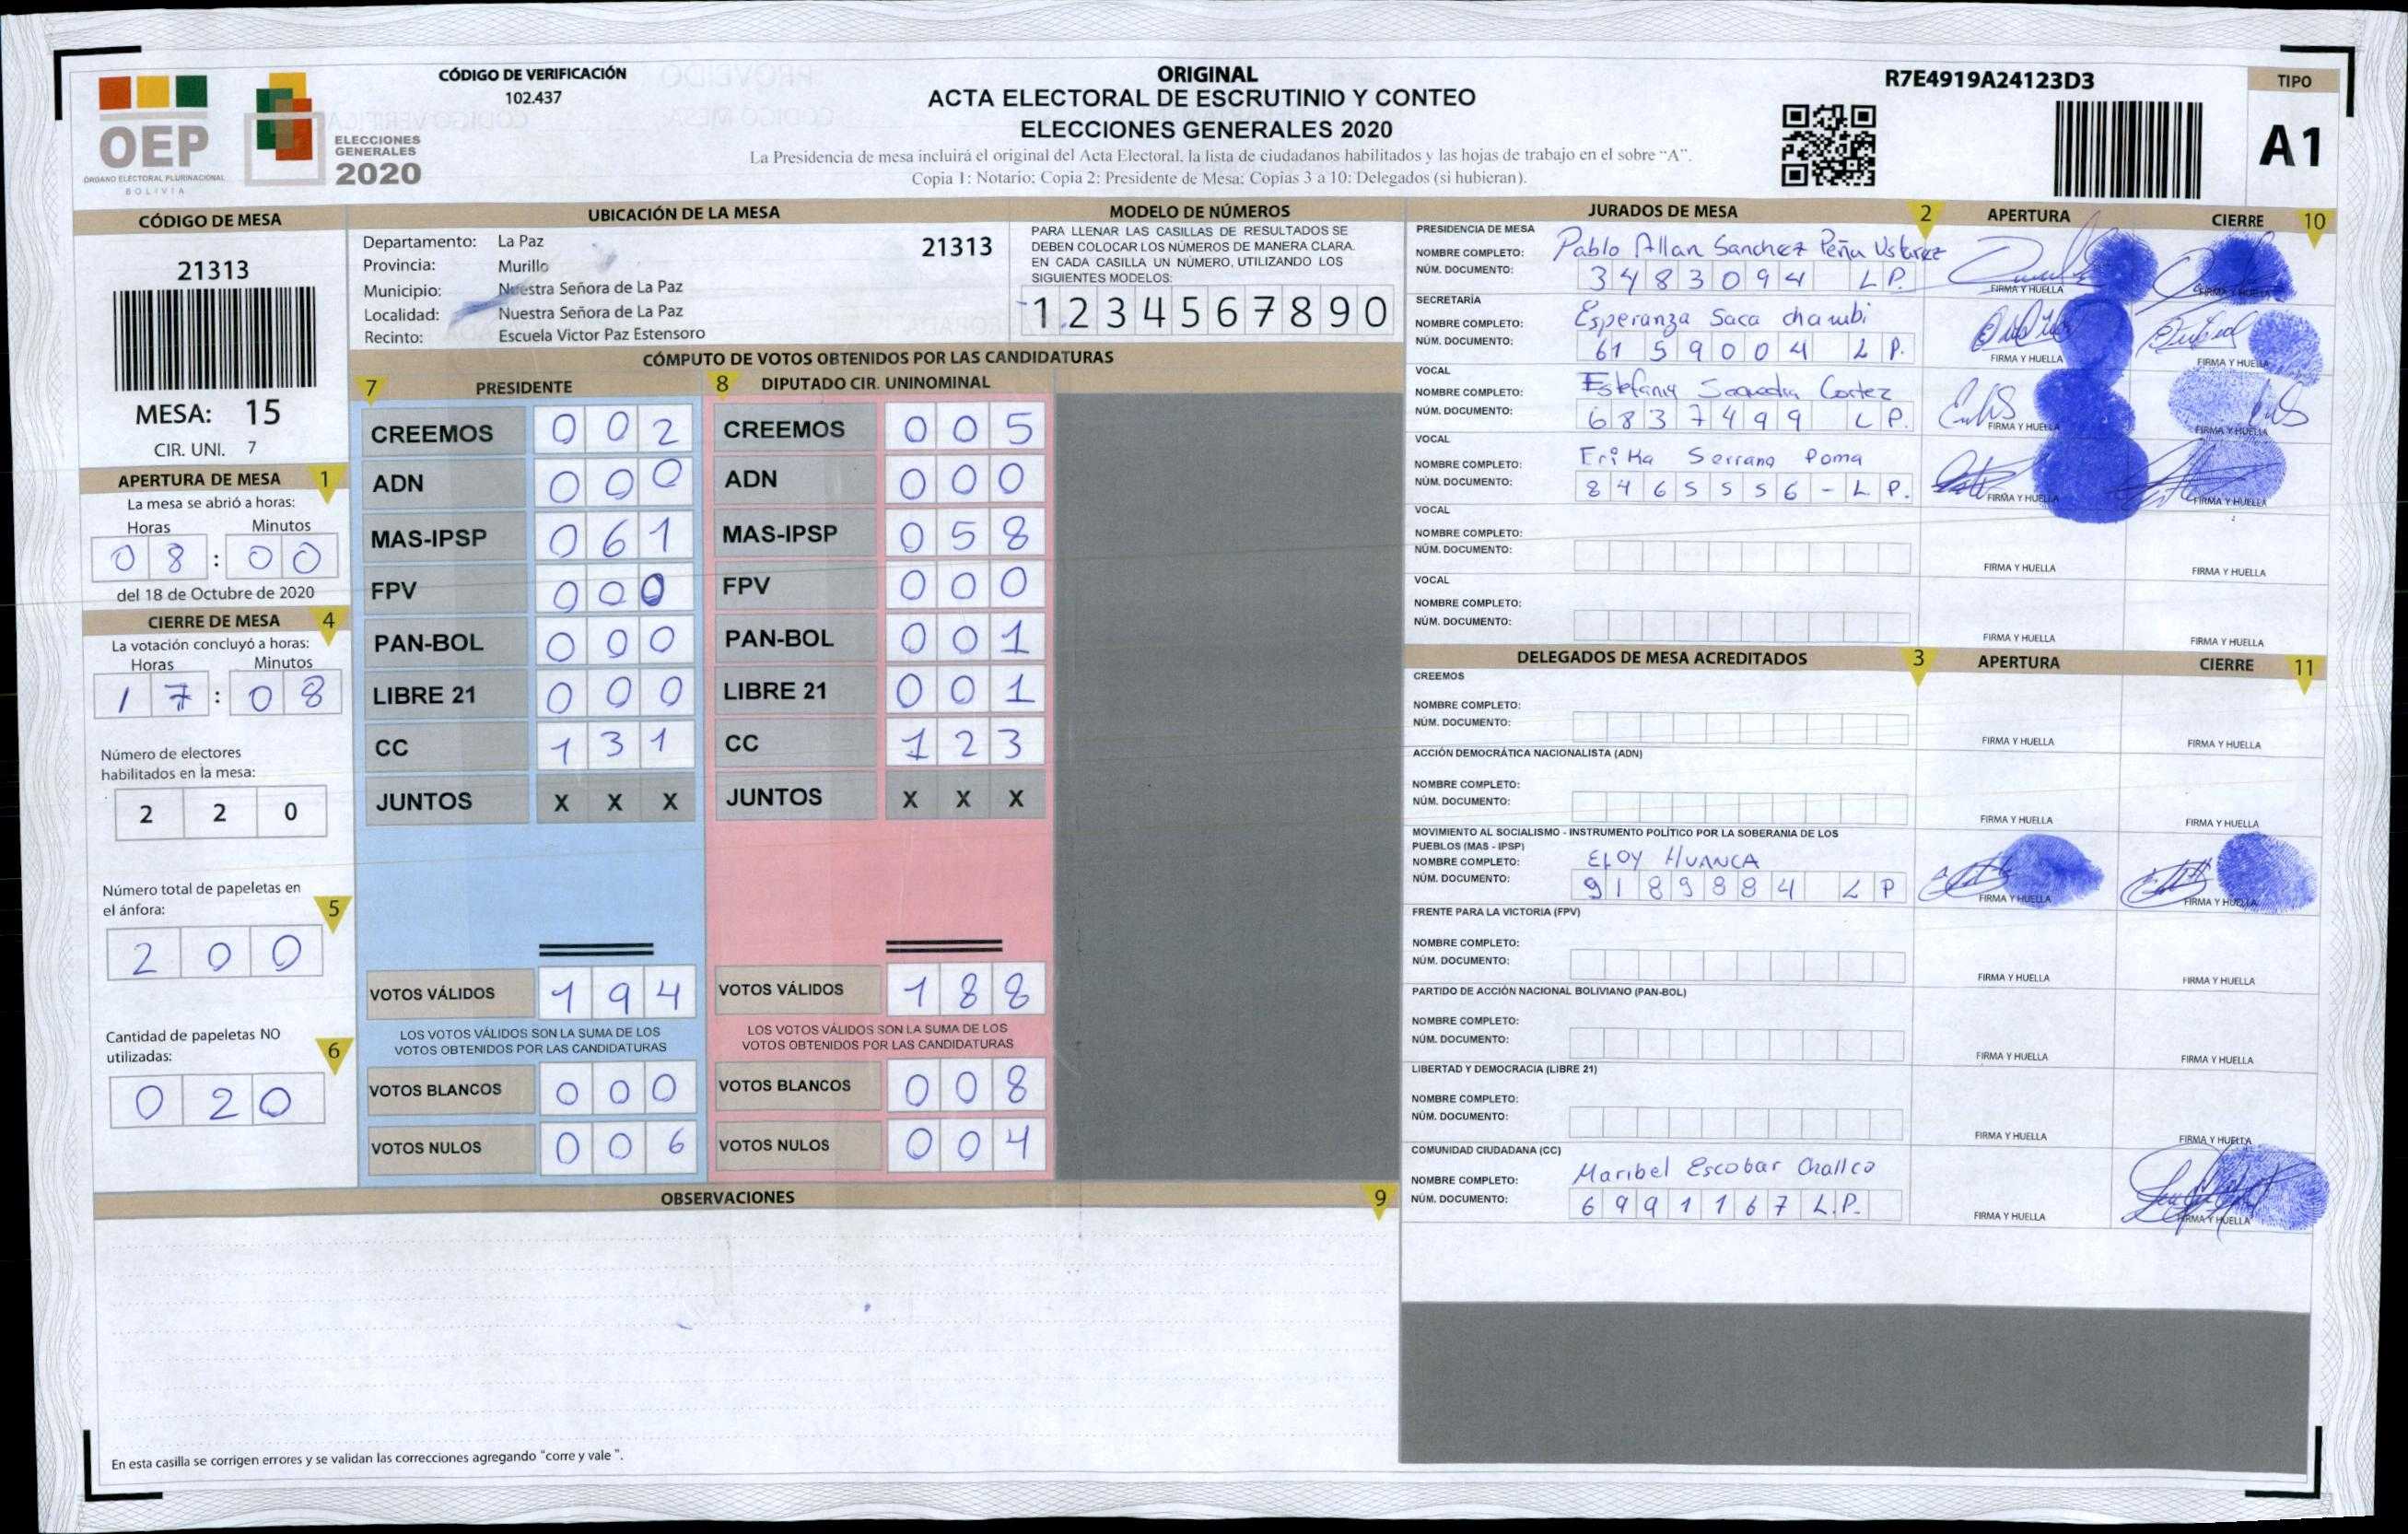 OEP
ÓRGANO ELECTORAL PLURINACIONAL
BOLIVIA
ELECCIONES
GENERALES
2020
CÓDIGO DE VERIFICACIÓN
102.437
ORIGINAL
ACTA ELECTORAL DE ESCRUTINIO Y CONTEO
ELECCIONES GENERALES 2020
La Presidencia de mesa incluirá el original del Acta Electoral, la lista de ciudadanos habilitados y las hojas de trabajo en el sobre “A”.
Copia 1: Notario; Copia 2: Presidente de Mesa; Copias 3 a 10: Delegados (si hubieran).
R7E4919A24123D3
TIPO
A1
CÓDIGO DE MESA
21313
MESA: 15
CIR. UNI. 7
APERTURA DE MESA 1
La mesa se abrió a horas:
Horas Minutos
0 8 : 0 0
del 18 de Octubre de 2020
CIERRE DE MESA 4
La votación concluyó a horas:
Horas Minutos
1 7 : 0 8
Número de electores
habilitados en la mesa:
2 2 0
Número total de papeletas en
el ánfora: 5
2 0 0
Cantidad de papeletas NO
utilizadas: 6
0 2 0
UBICACIÓN DE LA MESA
Departamento: La Paz 21313
Provincia: Murillo
Municipio: Nuestra Señora de La Paz
Localidad: Nuestra Señora de La Paz
Recinto: Escuela Victor Paz Estensoro
MODELO DE NÚMEROS
PARA LLENAR LAS CASILLAS DE RESULTADOS SE
DEBEN COLOCAR LOS NÚMEROS DE MANERA CLARA.
EN CADA CASILLA UN NÚMERO, UTILIZANDO LOS
SIGUIENTES MODELOS:
1 2 3 4 5 6 7 8 9 0
CÓMPUTO DE VOTOS OBTENIDOS POR LAS CANDIDATURAS
7 PRESIDENTE
CREEMOS 0 0 2
ADN 0 0 0
MAS-IPSP 0 6 1
FPV 0 0 0
PAN-BOL 0 0 0
LIBRE 21 0 0 0
CC 1 3 1
JUNTOS X X X
VOTOS VÁLIDOS 1 9 4
LOS VOTOS VÁLIDOS SON LA SUMA DE LOS
VOTOS OBTENIDOS POR LAS CANDIDATURAS
VOTOS BLANCOS 0 0 0
VOTOS NULOS 0 0 6
8 DIPUTADO CIR. UNINOMINAL
CREEMOS 0 0 5
ADN 0 0 0
MAS-IPSP 0 5 8
FPV 0 0 0
PAN-BOL 0 0 1
LIBRE 21 0 0 1
CC 1 2 3
JUNTOS X X X
VOTOS VÁLIDOS 1 8 8
LOS VOTOS VÁLIDOS SON LA SUMA DE LOS
VOTOS OBTENIDOS POR LAS CANDIDATURAS
VOTOS BLANCOS 0 0 8
VOTOS NULOS 0 0 4
OBSERVACIONES 9
En esta casilla se corrigen errores y se validan las correcciones agregando “corre y vale ”.
JURADOS DE MESA 2 APERTURA CIERRE 10
PRESIDENCIA DE MESA
NOMBRE COMPLETO: Pablo Allan Sanchez Peña
NÚM. DOCUMENTO: 3 4 8 3 0 9 4 L P.
FIRMA Y HUELLA FIRMA Y HUELLA
SECRETARÍA
NOMBRE COMPLETO: Esperanza Saca chambi
NÚM. DOCUMENTO: 61 5 9 0 0 4 L P.
FIRMA Y HUELLA FIRMA Y HUELLA
VOCAL
NOMBRE COMPLETO: Estefany Cortez
NÚM. DOCUMENTO: 6 8 3 7 4 9 9 L P.
FIRMA Y HUELLA FIRMA Y HUELLA
VOCAL
NOMBRE COMPLETO: Erika Serrano Poma
NÚM. DOCUMENTO: 8 4 6 5 5 5 6 - L P.
FIRMA Y HUELLA FIRMA Y HUELLA
VOCAL
NOMBRE COMPLETO:
NÚM. DOCUMENTO:
FIRMA Y HUELLA FIRMA Y HUELLA
VOCAL
NOMBRE COMPLETO:
NÚM. DOCUMENTO:
FIRMA Y HUELLA FIRMA Y HUELLA
DELEGADOS DE MESA ACREDITADOS 3 APERTURA CIERRE 11
CREEMOS
NOMBRE COMPLETO:
NÚM. DOCUMENTO:
FIRMA Y HUELLA FIRMA Y HUELLA
ACCIÓN DEMOCRÁTICA NACIONALISTA (ADN)
NOMBRE COMPLETO:
NÚM. DOCUMENTO:
FIRMA Y HUELLA FIRMA Y HUELLA
MOVIMIENTO AL SOCIALISMO - INSTRUMENTO POLÍTICO POR LA SOBERANIA DE LOS
PUEBLOS (MAS - IPSP)
NOMBRE COMPLETO: ELOY HUANCA
NÚM. DOCUMENTO: 9 1 8 9 8 8 4 L P
FIRMA Y HUELLA FIRMA Y HUELLA
FRENTE PARA LA VICTORIA (FPV)
NOMBRE COMPLETO:
NÚM. DOCUMENTO:
FIRMA Y HUELLA FIRMA Y HUELLA
PARTIDO DE ACCIÓN NACIONAL BOLIVIANO (PAN-BOL)
NOMBRE COMPLETO:
NÚM. DOCUMENTO:
FIRMA Y HUELLA FIRMA Y HUELLA
LIBERTAD Y DEMOCRACIA (LIBRE 21)
NOMBRE COMPLETO:
NÚM. DOCUMENTO:
FIRMA Y HUELLA FIRMA Y HUELLA
COMUNIDAD CIUDADANA (CC)
NOMBRE COMPLETO: Maribel Escobar Challco
NÚM. DOCUMENTO: 6 9 9 1 1 6 7 L.P.
FIRMA Y HUELLA FIRMA Y HUELLA